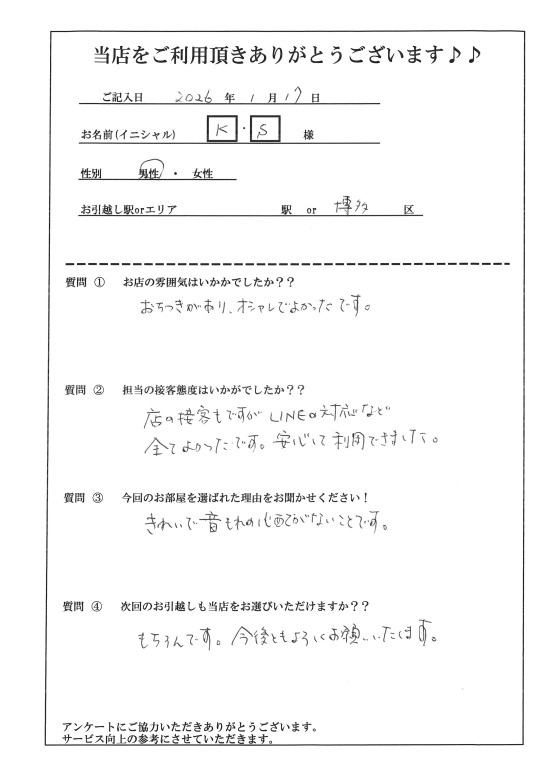 当店をご利用頂きありがとうございます♪♪
ご記入日 2026 年 1 月 17 日
お名前(イニシャル) K・S 様
性別 男性 ・ 女性
お引越し駅orエリア 駅 or 博多 区
質問 ① お店の雰囲気はいかかでしたか??
おちつきがあり、オシャレでよかったです。
質問 ② 担当の接客態度はいかがでしたか??
店の接客もですが LINEの対応など
全てよかったです。安心して利用できました。
質問 ③ 今回のお部屋を選ばれた理由をお聞かせください!
きれいで音もれの心配がないことです。
質問 ④ 次回のお引越しも当店をお選びいただけますか??
もちろんです。今後ともよろしくお願いいたします。
アンケートにご協力いただきありがとうございます。
サービス向上の参考にさせていただきます。